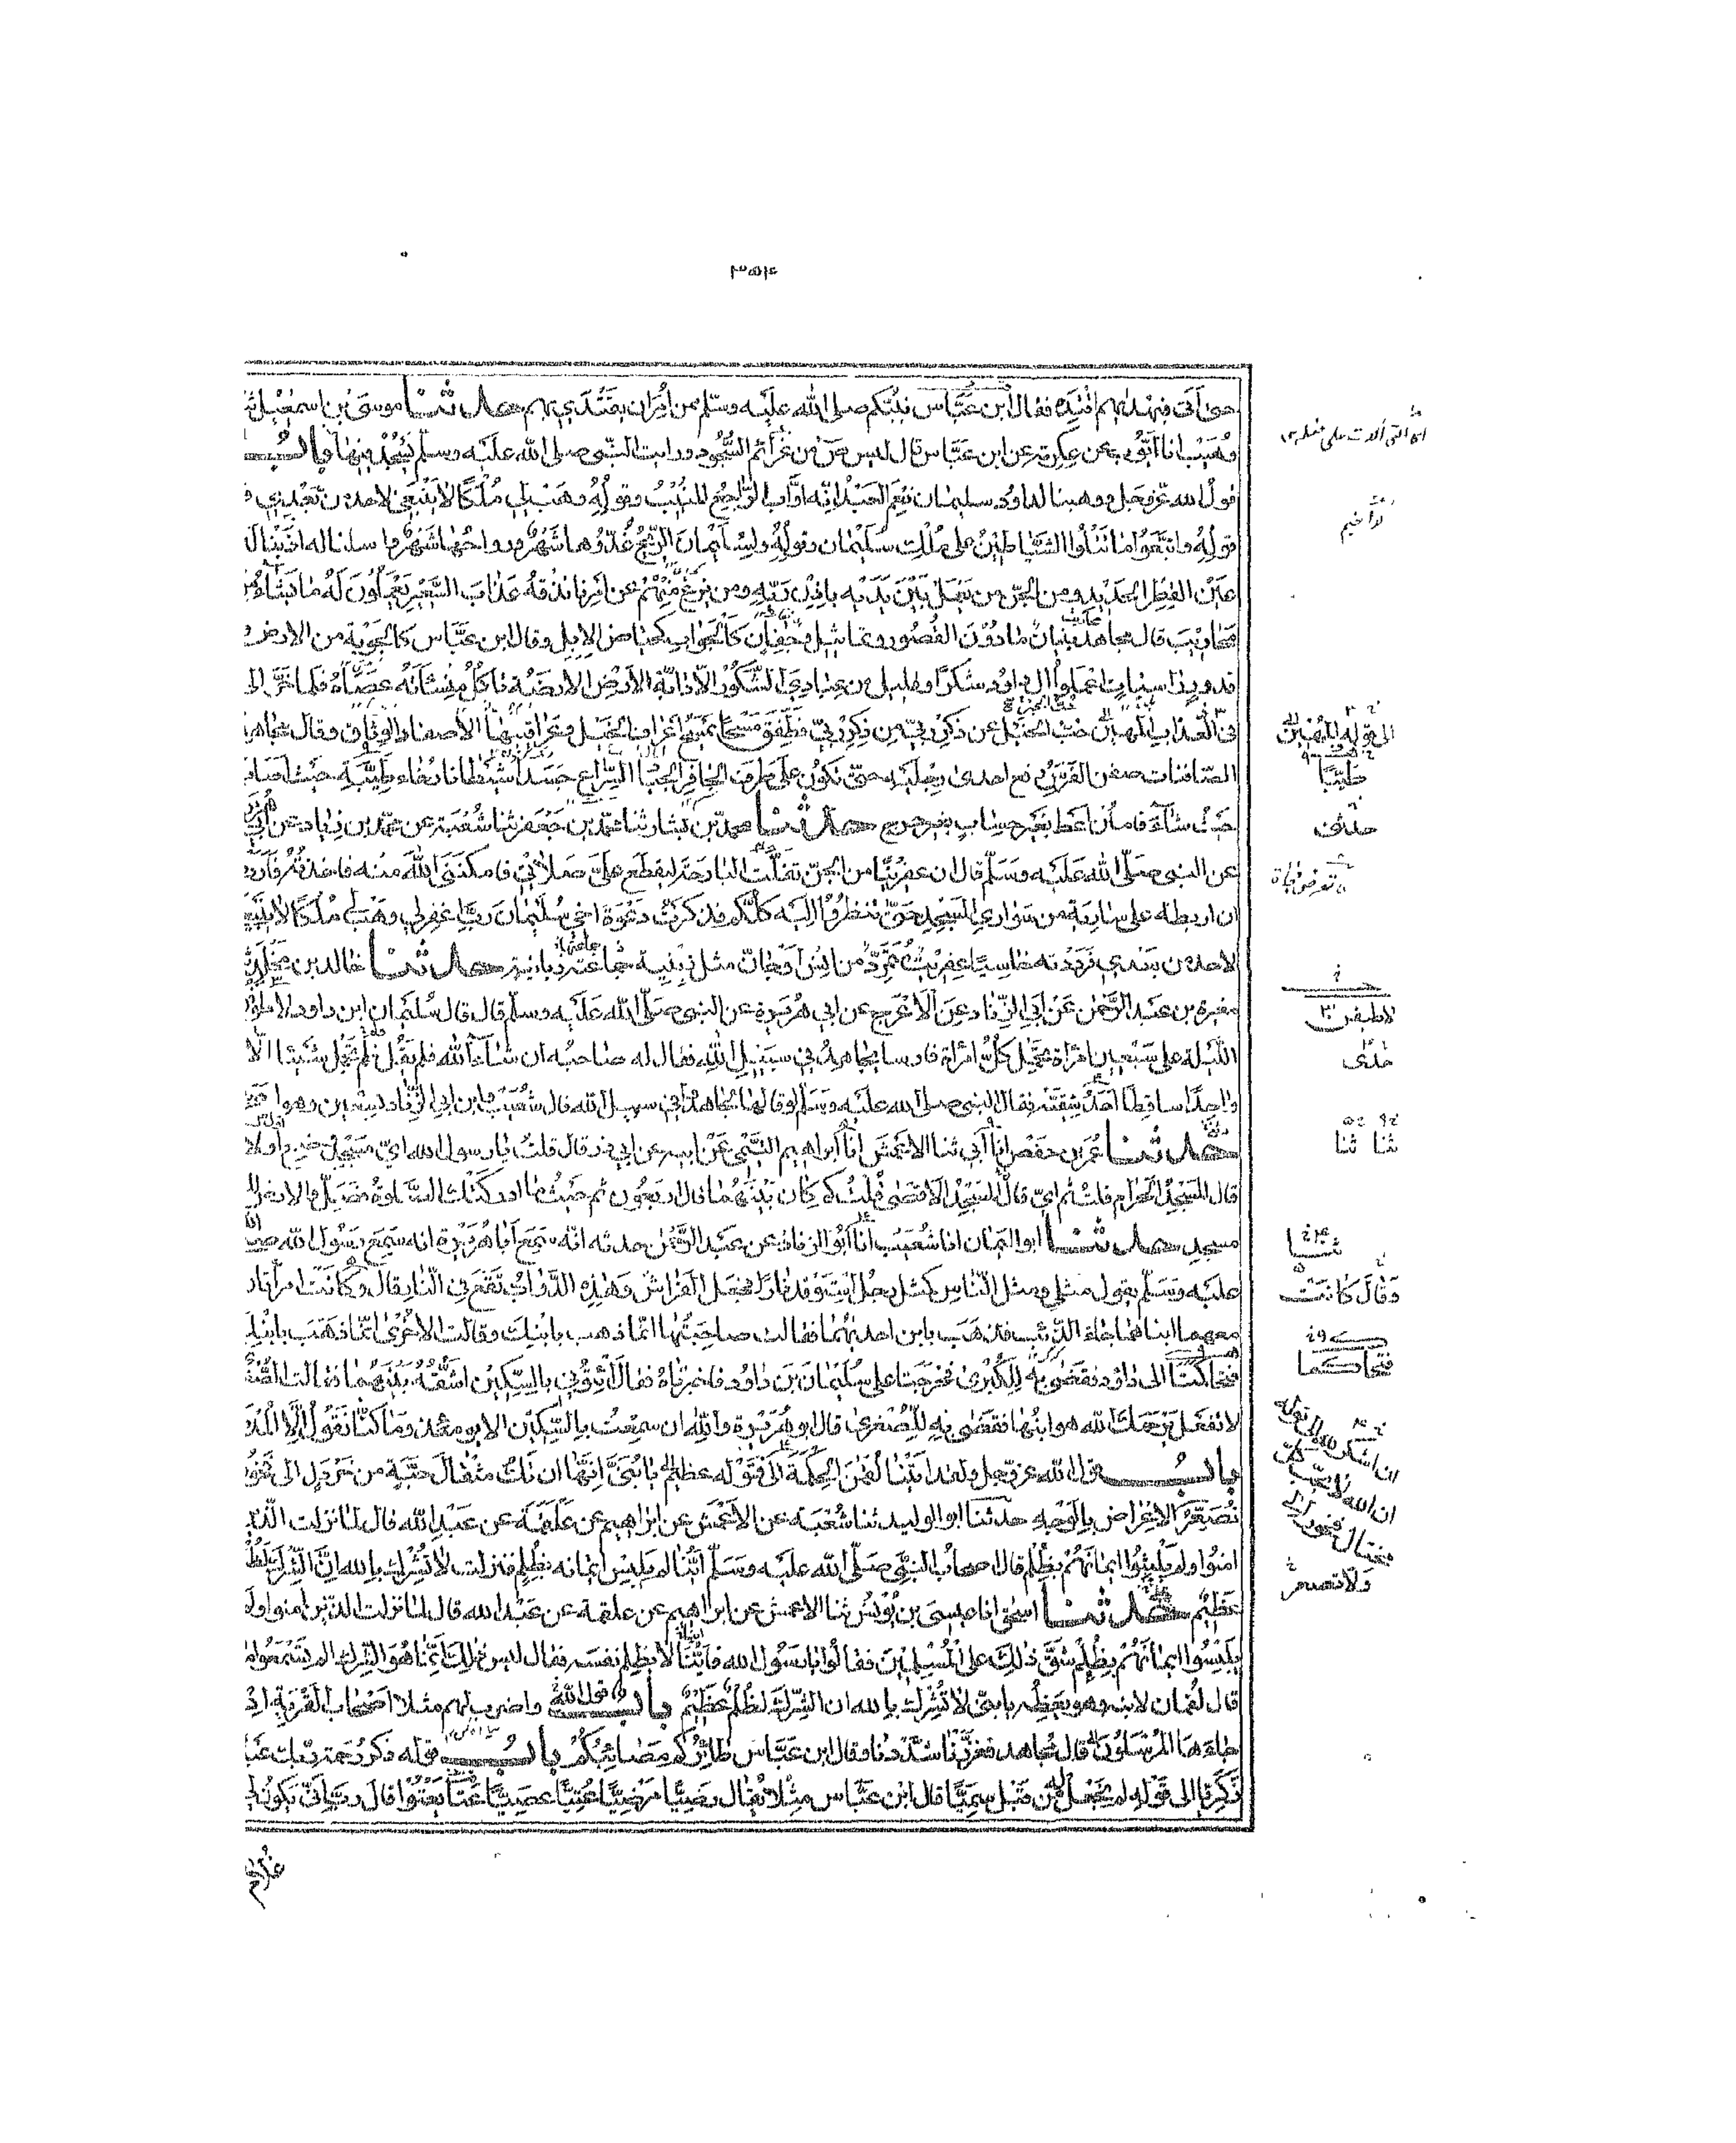 حتى أتى فبهداهم اقتده فقال ابن عباس نبيكم صلى الله عليه وسلم ممن أمر ان يقتدي بهم حدثنا موسى بن اسمعيل
وهيب انا أيوب عن عكرمة عن ابن عباس قال ليس ص من عزائم السجود ورايت النبي صلى الله عليه وسلم يسجد فيها باب
قول الله عز وجل ووهبنا لداود سليمان نعم العبد انه اواب الراجع المنيب وقوله وهب لي ملكا لا ينبغي لاحد من بعدي
قوله واتبعوا ما تتلوا الشياطين على ملك سليمان وقوله ولسليمان الريح غدوها شهر ورواحها شهر واسلنا له اذبنا له
عين القطر الحديد ومن الجن من يعمل بين يديه باذن ربه ومن يزغ منهم عن امرنا نذقه عذاب السعير يعملون له ما يشاء من
محاريب قال مجاهد بنيان مادون القصور وتماثيل وجفان كالجواب كحياض الابل وقال ابن عباس كالجوبة من الارض و
قدور راسيات اعملوا ال داود شكرا وقليل من عبادي الشكور الا دابة الارض الارضة تاكل منسأته عصاه فلما خر الى
في العذاب المهين حب الخير عن ذكر ربي من ذكر ربي فطفق مسحا يمسح اعراف الخيل وعراقيبها الاصفاد الوثاق وقال مجاهد
الصافنات صفن الفرس رفع احدى رجليه حتى تكون على طرف الحافر الجياد السراع جسدا شيطانا رخاء طيبة حيث اصاب
حيث شاء فامنن اعط بغير حساب بغير حرج حدثنا محمد بن بشار ثنا محمد بن جعفر ثنا شعبة عن محمد بن زياد عن ابي هريرة
عن النبي صلى الله عليه وسلم قال ان عفريتا من الجن تفلت البارحة ليقطع علي صلاتي فامكنني الله منه فاخذته فأردت
ان اربطه على سارية من سواري المسجد حتى تنظروا اليه كلكم فذكرت دعوة اخي سليمان رب اغفر لي وهب لي ملكا لا ينبغي
لاحد من بعدي فرددته خاسيا عفريت متمرد من انس او جان مثل زبنية جماعته زبانية حدثنا خالد بن مخلد
مغيرة بن عبد الرحمن عن ابي الزناد عن الاعرج عن ابي هريرة عن النبي صلى الله عليه وسلم قال قال سليمان ابن داود لاطوفن
الليلة على سبعين امرأة تحمل كل امرأة فارسا يجاهد في سبيل الله فقال له صاحبه ان شاء الله فلم يقل فلم تحمل شيئا الا
واحدا ساقطا احد شقيه فقال النبي صلى الله عليه وسلم لو قالها لجاهدوا في سبيل الله قال شعيب وابن ابي الزناد تسعين وهو اصح
حدثنا عمر بن حفص انا أبي ثنا الاعمش انا ابراهيم التيمي عن ابيه عن ابي ذر قال قلت يا رسول الله اي مسجد وضع اولا
قال المسجد الحرام قلت ثم اي قال المسجد الاقصى قلت كم كان بينهما قال اربعون ثم حيث ما ادركتك الصلوة فصل والارض لك
مسجد حدثنا ابو اليمان انا شعيب انا أبو الزناد عن عبد الرحمن حدثه انه سمع أبا هريرة انه سمع رسول الله صلى الله
عليه وسلم يقول مثلي ومثل الناس كمثل رجل استوقد نارا فجعل الفراش وهذه الدواب تقع في النار قال وكانت امرأتان
معهما ابناهما جاء الذئب فذهب بابن احدٰهما فقالت صاحبتها انما ذهب بابنك وقالت الاخرى انما ذهب بابنك
فتحاكمتا الى داود فقضى به للكبرى فخرجتا على سليمان بن داود فاخبرتاه فقال ائتوني بالسكين اشقه بينهما فقالت الصغرى
لا تفعل يرحمك الله هو ابنها فقضى به للصغرى قال ابو هريرة والله ان سمعت بالسكين الا يومئذ وما كنا نقول الا المدية
باب قول الله عز وجل ولقد اتينا لقمن الحكمة الى قوله عظيم يا بني انها ان تك مثقال حبة من خردل الى فخور
تصعر الاعراض بالوجه حدثنا ابو الوليد ثنا شعبة عن الاعمش عن ابراهيم عن علقمة عن عبد الله قال لما نزلت الذين
امنوا ولم يلبسوا ايمانهم بظلم قال اصحاب النبي صلى الله عليه وسلم أينا لم يلبس ايمانه بظلم فنزلت لا تشرك بالله ان الشرك لظلم
عظيم حدثنا اسحق انا عيسى بن يونس ثنا الاعمش عن ابراهيم عن علقمة عن عبد الله قال لما نزلت الذين امنوا ولم
يلبسوا ايمانهم بظلم شق ذلك على المسلمين فقالوا يا رسول الله فأينا لا يظلم نفسه فقال ليس ذلك انما هو الشرك الم تسمعوا ما
قال لقمان لابنه وهو يعظه يا بني لا تشرك بالله ان الشرك لظلم عظيم باب قول الله واضرب لهم مثلا اصحاب القرية اذ
جاءها المرسلون قال مجاهد فعززنا شددنا وقال ابن عباس طائركم مصائبكم باب قوله ذكر رحمة ربك عبده
زكريا الى قوله لم نجعل له من قبل سميا قال ابن عباس مثلا يقال رضيا مرضيا عتيا عصيا عتا يعتوا قال رب انى يكون لي
غلام
الى قوله المهين
طيبا
حدثني
لاطيفن
حدثني
ثنا ثنا
ثنا
وقال كانت
فتحاكما
ان اشكر لله الى قوله
ان الله لا يحب كل
مختال فخور
ولا تصعر